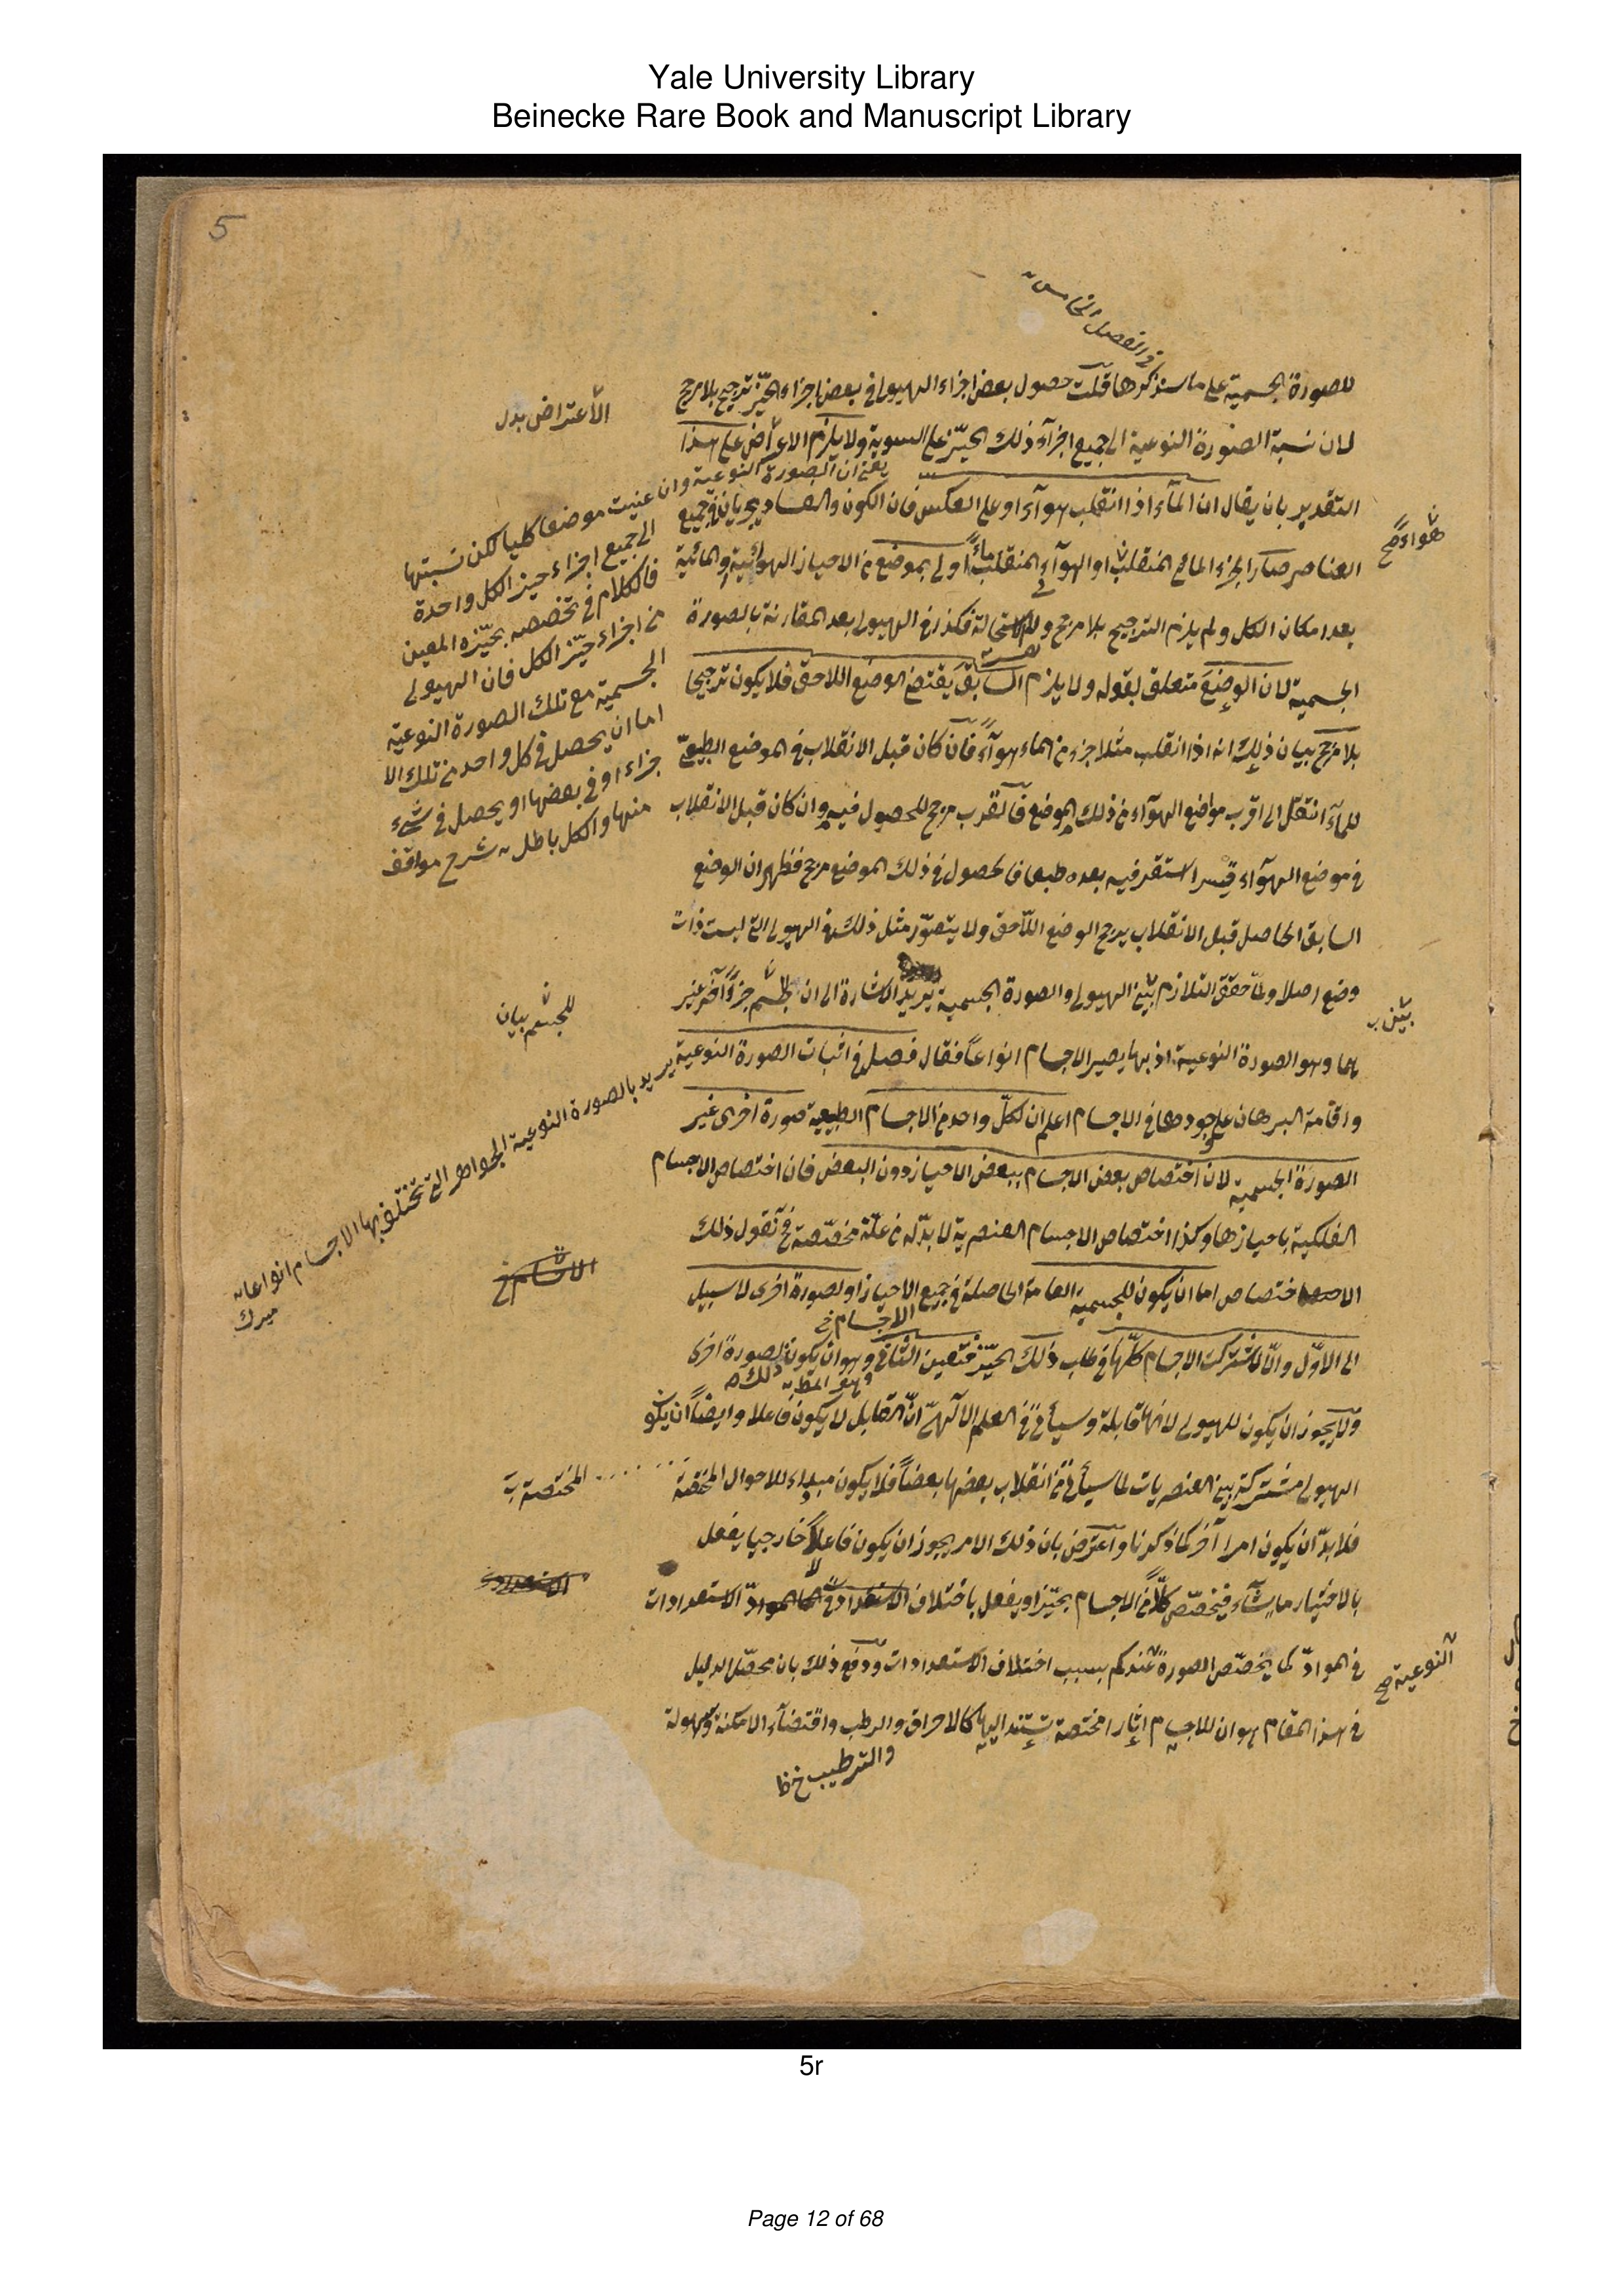 Yale University Library
Beinecke Rare Book and Manuscript Library
5
في الفصل الخامس
للصورة الجسمية على ما سنذكرها قلت حصول بعض اجزاء الهيولى في بعض اجزاء الحيّز ترجيح بلا مرجح
الاعتراض بدل
لان نسبة الصورة النوعية الى جميع اجزآء ذلك الحيّز على السوية ولا يلزم الاعتراض على هذا
التقدير بان يقال ان المآء اذا انقلب هوآء او على العكس فان الكون والفساد يجريان في جميع
هواء صح
العناصر صار الجزء المائي المنقلب او الهوآء المنقلب ماءً اولى بموضع من الاحياز الهوائية والمائية
بعد امكان الكل ولم يلزم الترجيح بلا مرجح فكذا في الهيولى بعد المقارنة بالصورة
الجسمية لان الوضع متعلق بقوله ولا يلزم السابق يقتضي الوضع اللاحق فلا يكون ترجيحا
بلا مرجح بيان ذلك انه اذا انقلب مثلا جزء من الماء هوآءً فان كان قبل الانقلاب في الموضع الطبيعيّ
للمآء انتقل الى اقرب مواضع الهوآء من ذلك الموضع فالقرب مرجح للحصول فيه وان كان قبل الانقلاب
في موضع الهوآء قسرا استقر فيه بعده طبعا فالحصول في ذلك الموضع مرجح فظهر ان الوضع
السابق الحاصل قبل الانقلاب يرجح الوضع اللاحق ولا يتصوّر مثل ذلك في الهيولى التي ليست ذات
وضع اصلا ولمّا حقق التلازم بين الهيولى والصورة الجسمية يريد الاشارة الى ان للجسم جزءًا آخر غير
بين
للجسم بيان
هما وهو الصورة النوعية اذ بها يصير الاجسام انواعاً فقال فصل في اثبات الصورة النوعية
واقامة البرهان على وجودها في الاجسام اعلم ان لكلّ واحد من الاجسام الطبيعية صورة اخرى غير
الصورة الجسمية لان اختصاص بعض الاجسام ببعض الاحياز دون البعض فان اختصاص الاجسام
الفلكية باحيازها وكذا اختصاص الاجسام العنصرية لا بدّ له من علّة مخصّصة فنقول ذلك
الاختصاص اما ان يكون للجسمية العامة الحاصلة في جميع الاحياز او لصورة اخرى لا سبيل
الاجسام خ
الى الاوّل والّا لاشتركت الاجسام كلّها في طلب ذلك الحيّز فتعين الثاني وهو ان يكون لصورة اخرى
وهو المطـ
ذلك
ولا يجوز ان يكون للهيولى لانها قابلة وسيأتي في العلم الالهيّ انّ القابل لا يكون فاعلا وايضاً ان يكون
الهيولى مشتركة بين العنصريات لما سيأتي من انقلاب بعضها بعضاً فلا يكون مبداء للاحوال المختصّة
المختصة
فلا بدّ ان يكون امرا آخر كما ذكرنا واعترض بان ذلك الامر يجوز ان يكون فاعلاً خارجيا يفعل
بالاختيار ما يشآء فيخصّص كلّاً من الاجسام بحيّز او يفعل باختلاف الاستعدادات
في الموادّ كما يخصّص الصورة عندكم بسبب اختلاف الاستعدادات ودفع ذلك بان محصّل الدليل
النوعية صح
في هذا المقام هو ان للاجسام اثارا مختصة تستند اليها كالاحراق والرطب واقتضآء الامكنة وسهولة
والترطيب خ ظ
يعني ان الصورة النوعية وان عينت موضعا كليا لكن نسبتها
الى جميع اجزاء حيز الكل واحدة
فالكلام في تخصصه بحيّزه المعين
من اجزاء حيّز الكل فان الهيولى
الجسمية مع تلك الصورة النوعية
اما ان يحصل في كل واحد من تلك الا
جزاء او في بعضها او يحصل في شيء
منها والكل باطل شرح مواقف
يريد بالصورة النوعية الجواهر التي تختلف بها الاجسام انواعا
ميرك
5r
Page 12 of 68